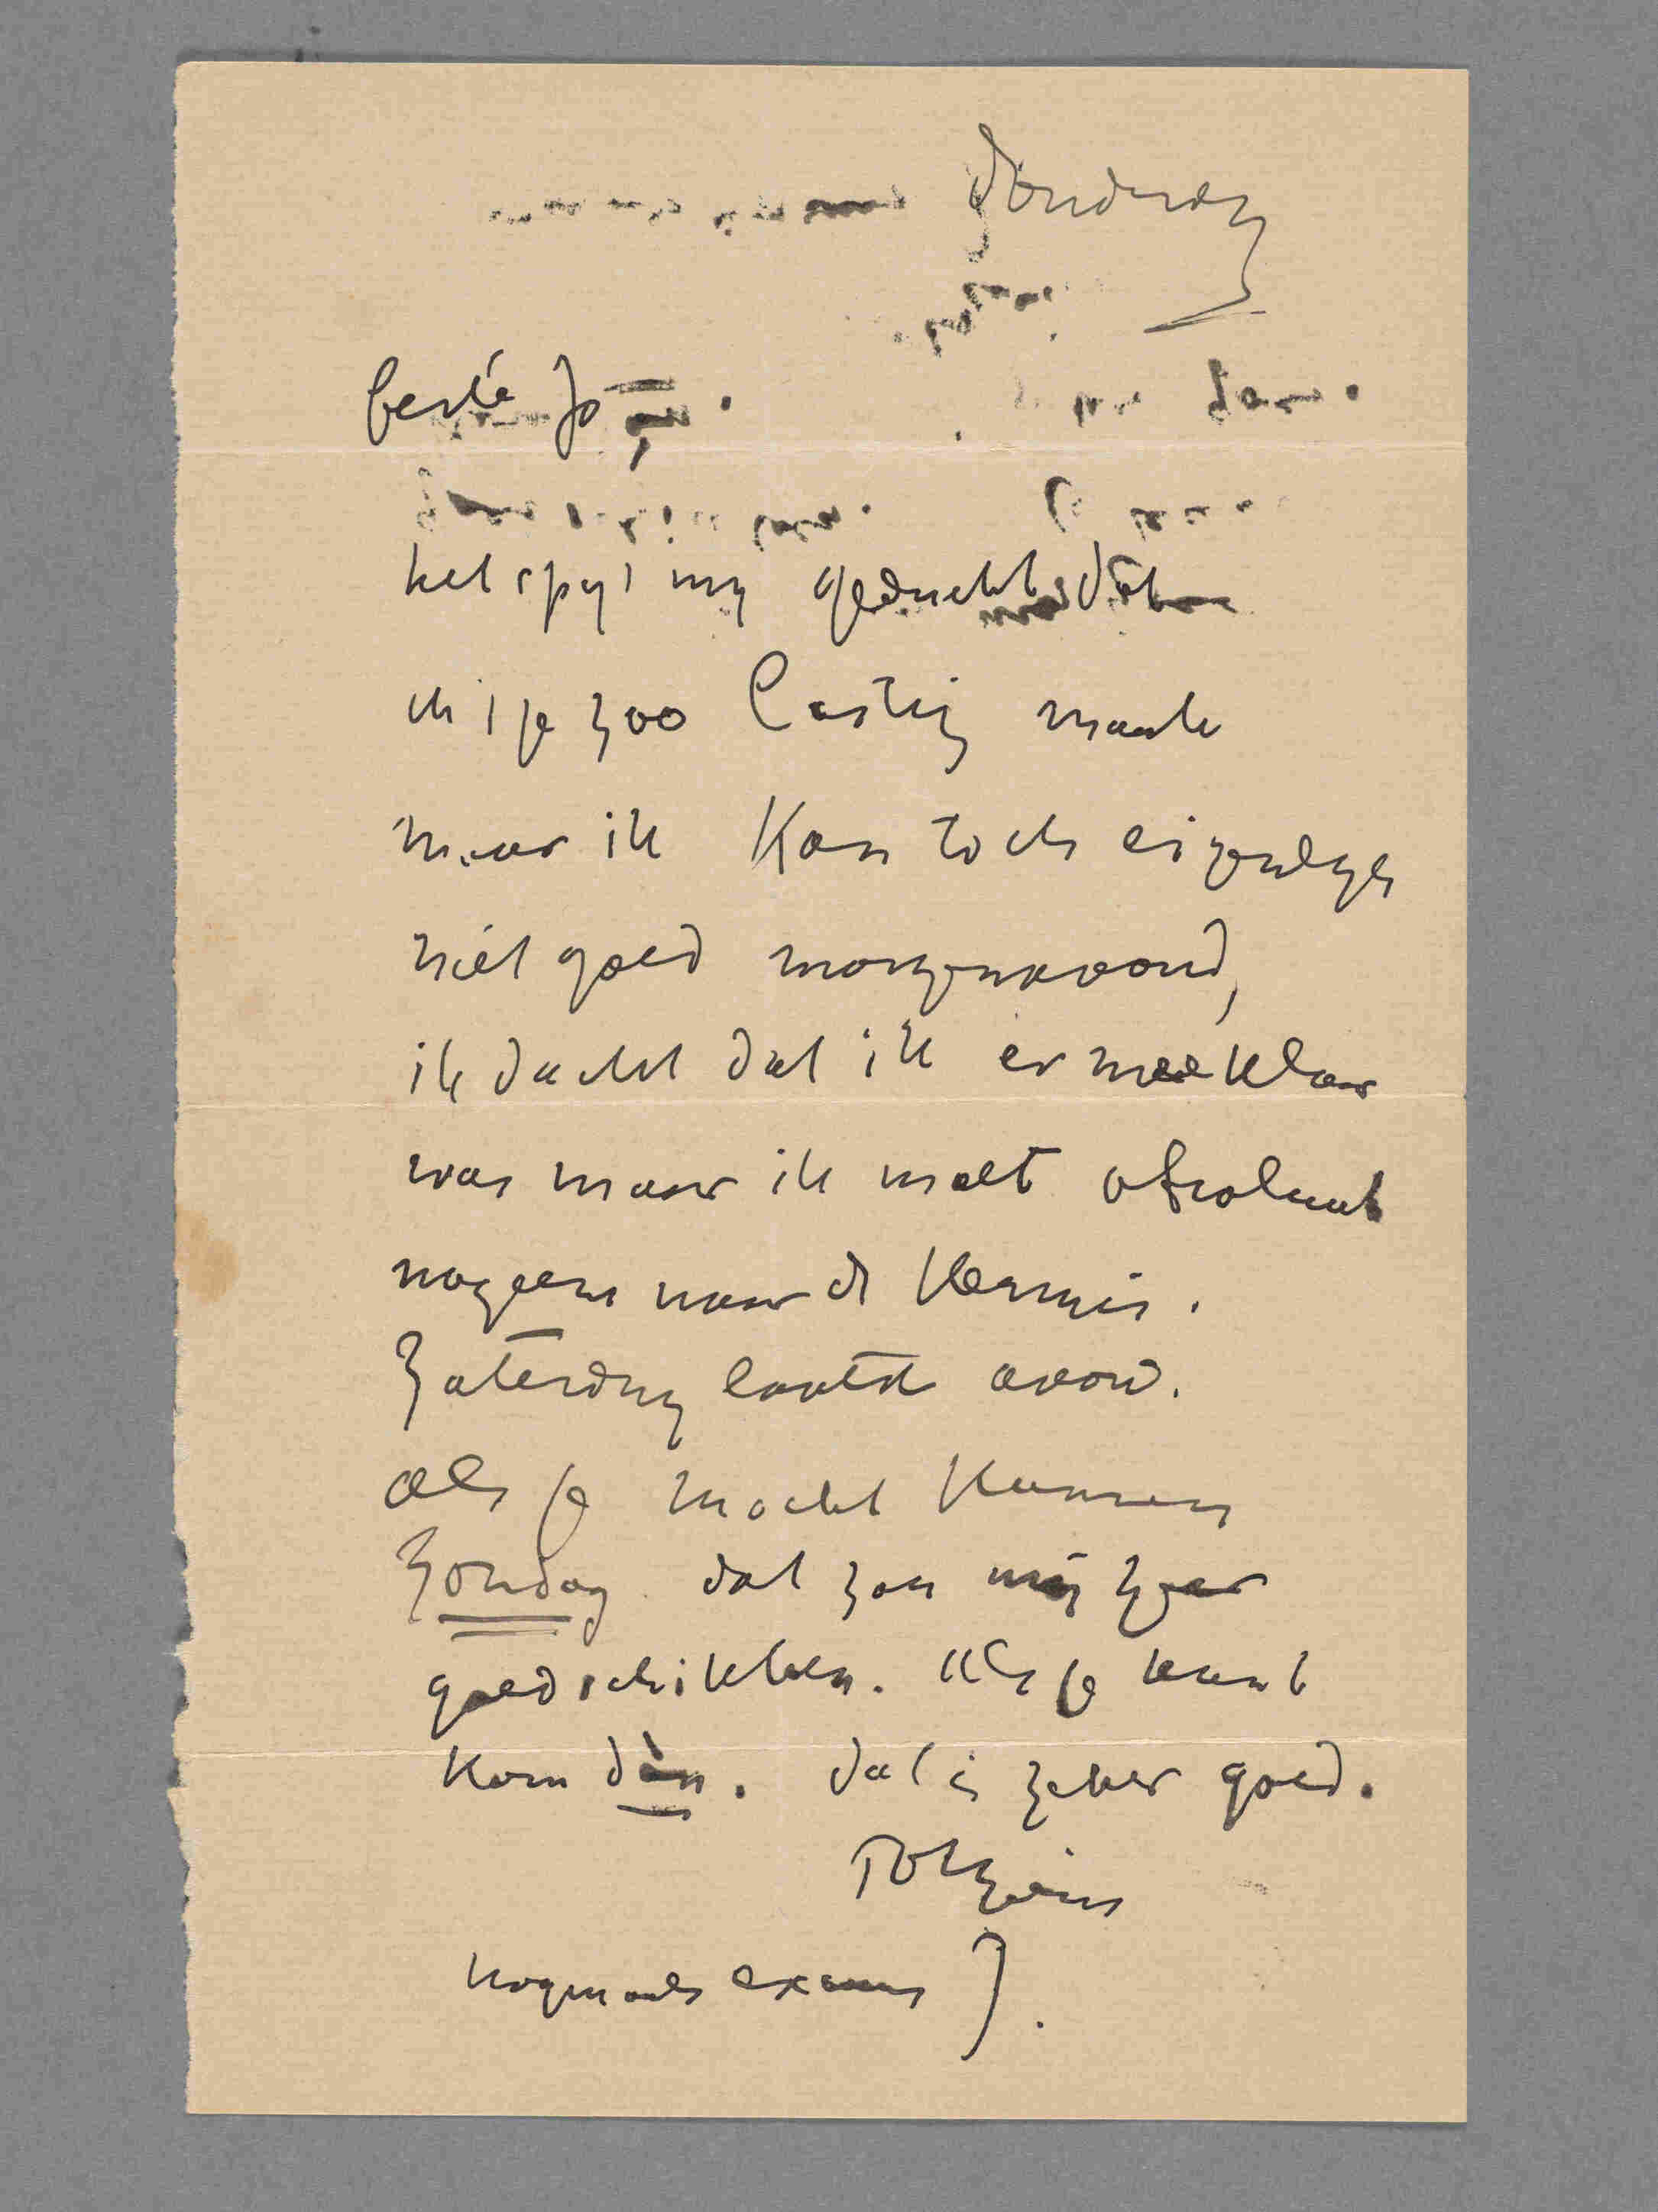 Donderdag
beste Jo.
het spyt my geducht dat
ik je zoo lastig maak
maar ik kan toch eigenlyk
niet goed morgenavond,
ik dacht dat ik er mee klaar
was maar ik moet absoluut
nog eens naar de Kermis.
Zaterdag laatste avond.
als je mocht kunnen
Zondag dat zou mij zeer
goed schikken. Als je kunt
kom dàn. dat is zeker goed.
Tot ziens
nogmaals excuus J.